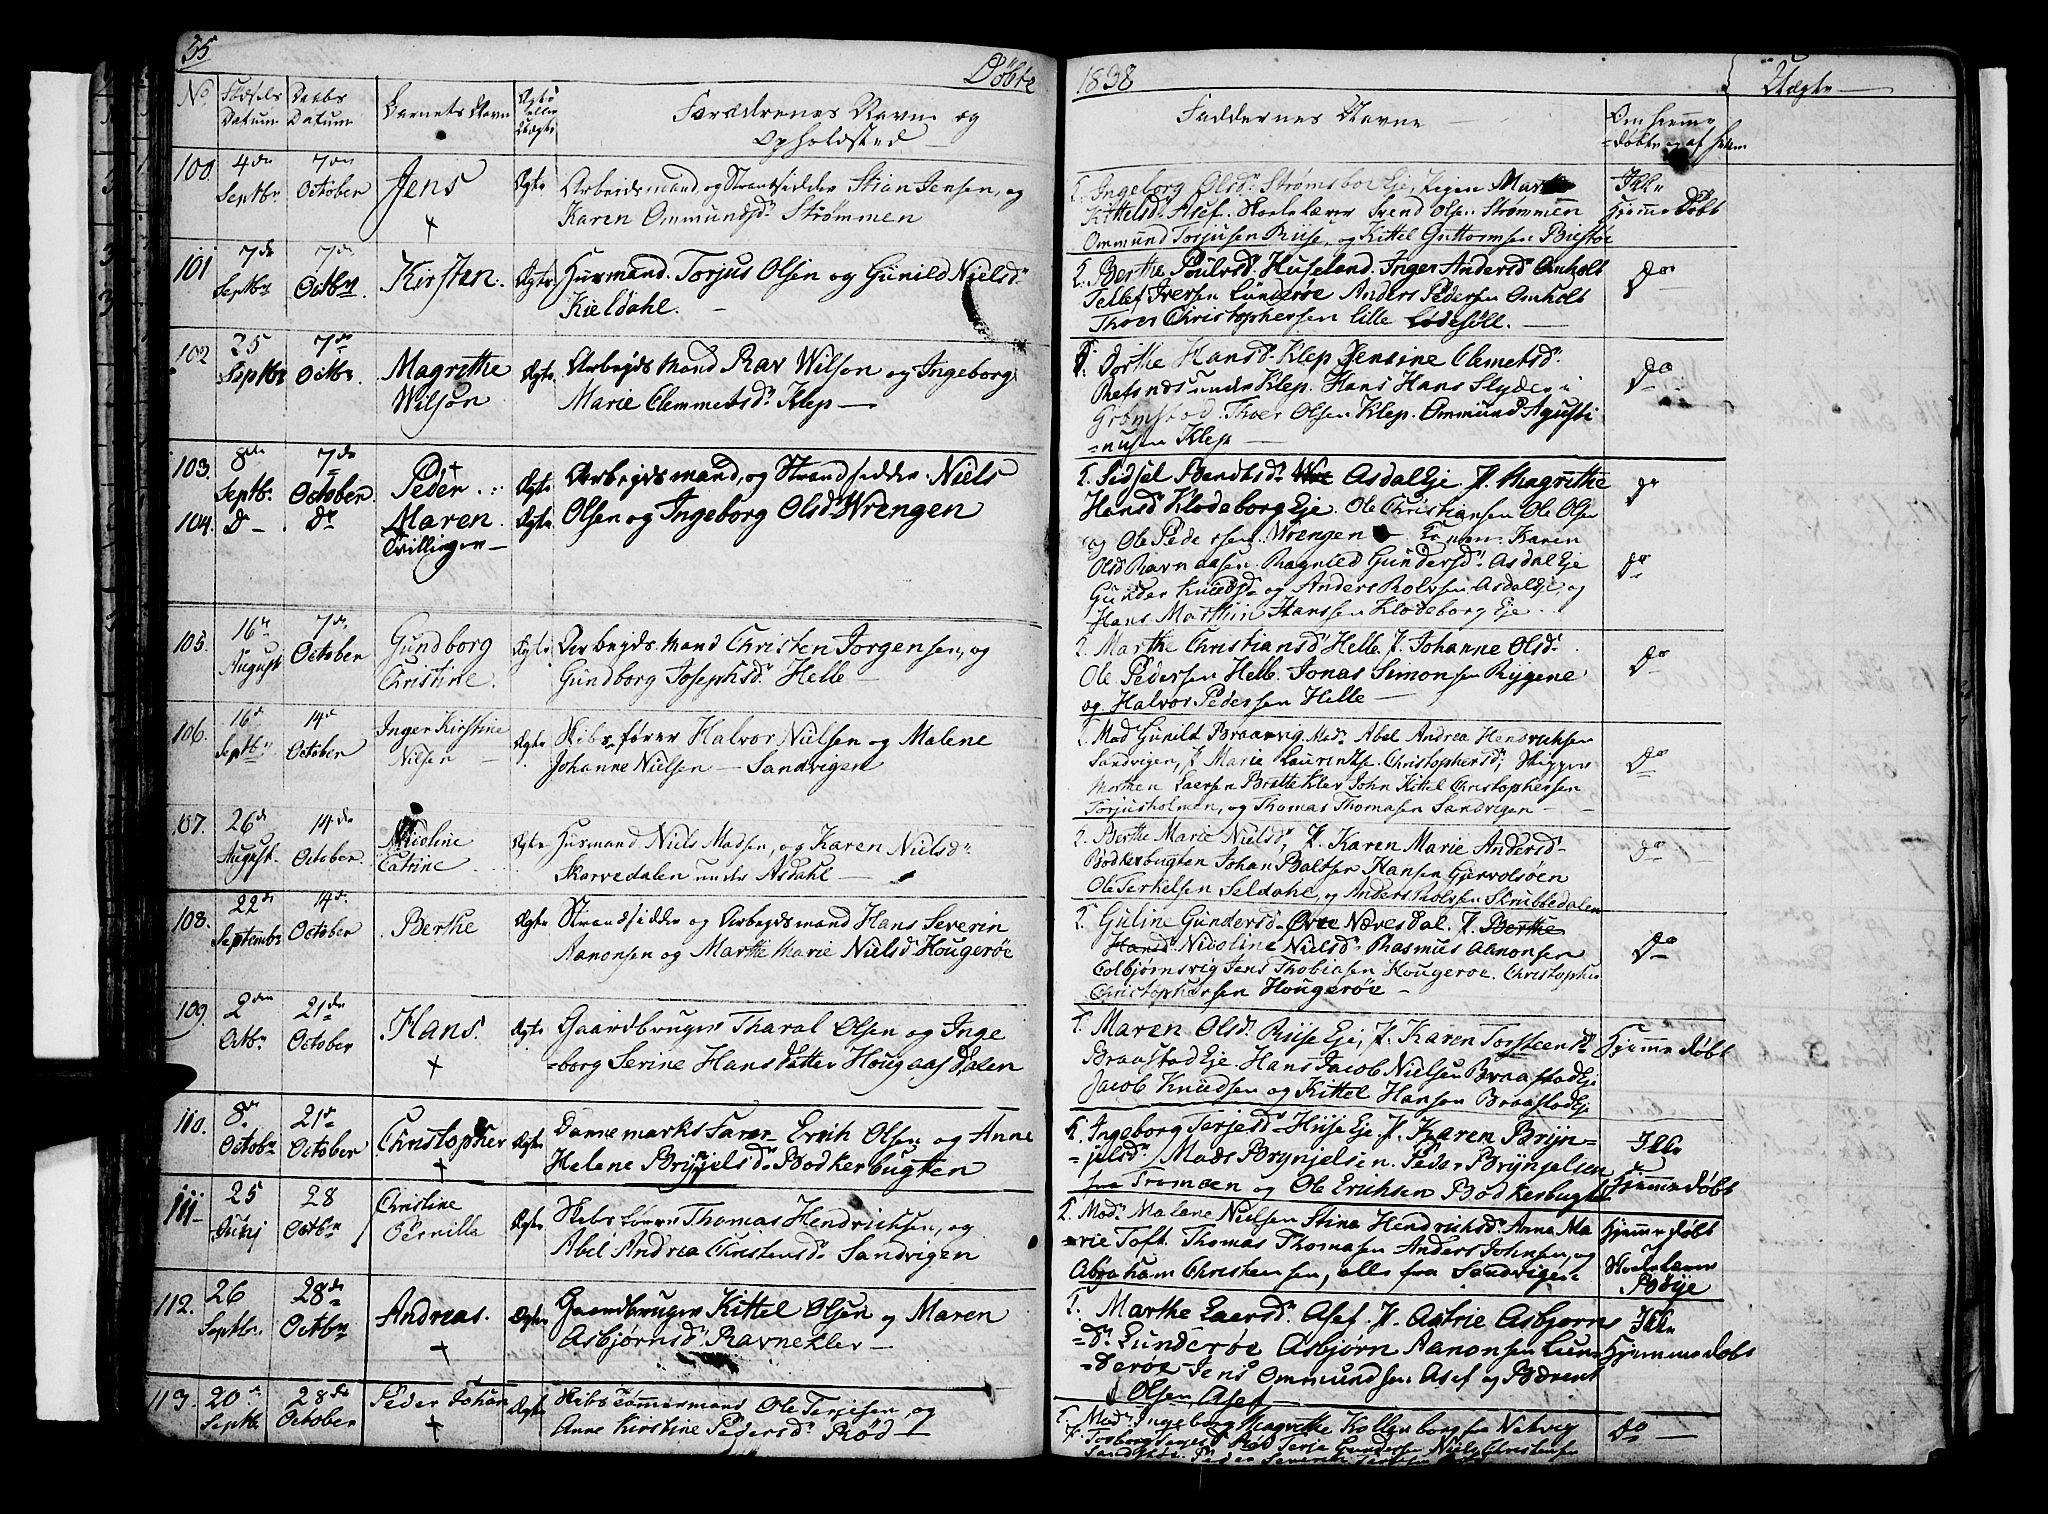 55
Döbte
1838
Uægte
No
Fødsels Datum
Daabs Datum
Barnets Navn
Ægte eller Uægte
Forældrenes Navn og Opholdsted
Faddernes Navne
Om hjemme-
døbte og af hvem
100. 4de Septbr. 7de October Jens Ægte Arbeidsmand og Strandsidder Stian Jensen, og
Karen Ommundsd. Strømmen
Ingeborg Olsd. Strømsboe Eje, Pigen
Kittelsd. Asef. Skolelærer Svend Olsen Strømmen
Ommund Torjusen Riise, og Kittel Guttormsen Biestøe
Ikke
Hjemmedøbt
101 7de Septbr. 7de Octbr. Kirsten. Ægte Huusmand. Torjus Olsen og Gunild Nielsd.
Kieldahl.
Berthe Poulsd. Huseland. Inger Andersd. Omholt
Tellef Iversen Lunderøe Anders Pedersen Omholt
Thoer Christophersen lille Lødesöll.
Do
102 25 Septbr. 7de Octbr. Magrethe Wilson Ægte Arbejdsmand Rav Wilson og Ingeborg
Marie Clemmetsd. Klep
Dorthe Hansd. Klep Jensine Clemetsd.
Refsnes under Klep. Hans Hans Slyder i
Grömstad. Thoer Olsen Klep. Ommund Agusti
=nusen Klep
Do
103. 8de Septbr. 7de October Peder Ægte Arbejdsmand, og Strandsidder Niels
104. D Do Maren. Ægte Olsen og Ingeborg Olsd. Wrengen
Tvillinger
Sidsel Bendtsd. Asdal Eje. P. Magrethe
Hansd. Klodeborg Eje. Ole Christiansen Ole Olsen
og Ole Pedersen Wrengen Karen
Olsd. Ravnaasen Ragnild Gundersd. Asdal Eje
Gunder Knudsen og Anders Rolvsen Asdal Eje, og
Hans Marthin Hanssen Klodeborg Eje.
Do
Do
105. 16de August 7de October Gundborg Christine. Ægte Arbejdsmand Christen Jorgensen, og
Gundborg Josephsd. Helle
Marthe Christiansd. Helle P. Johanne Olsd.
Ole Pedersen Helle. Jonas Simonsen Rygene
og Halvor Pedersen Helle
Do
106. 16de Septbr. 14de October Inger Kirstine Nilsen Ægte Skibsfører Halvor Nielsen og Malene
Johanne Nielsen Sandvigen
Mad Gunild Braarvig Mad. Abel Andrea Hendrichsen
Sandvigen, P. Marie Christophersd., Skipper
Morthen Laersen Brattekles John Kittel Christophersen
Torjusholmen, og Thomas Thomasen Sandvigen
Do
107. 26de August. 14de October. Nicoline Catrine Ægte Huusmand Niels Madsen, og Karen Nielsd.
Skarvedalen under Asdahl
2. Berthe Marie Nielsd, P. Karen Marie Andersd.
Bödkerbugten Johan Baltser Hansen Gjervolsöen
Ole Terkelsen Seldahl, og Anders Rolvsen Skrubbedalen
Do
108. 22de Septembr 14de October Berthe Ægte Strandsidder og Arbejdsmand Hans Severin
Aanonsen og Marthe Marie Nielsd. Hougerøe
Guline Gundersd. Øvre Næresdal. P. Berthe
Hansd. Nicoline Nielsd. Rasmus Aanonsen
Colbjørnsvig Jens Thobiasen Hougeroe. Christopher
Christophersen Hougerøe
Do
109. 2den Octbr. 21de October Hans. Ægte Gaardbruger Tharal Olsen og Inge
=borg Serine Hans Datter Hougaasdalen
Maren Olsd. Riise Eje, P. Karen Torsteensd.
Braastad Eje. Hans Jacob Nielsen Braastad Eje
Jacob Knudsen og Kittel Hansen Braastad Eje
Hjemmedöbt
110. 8de Octobr 21de October Christopher Ægte Erich Olsen og Anne
Helene Brynjelsd. Bodkerbugten
Ingeborg Terjesd. Huje Eje P. Karen Bryn=
=jelsd. Mads Brynjelsen. Peder Brynjelsen
fra Tromøen og Ole Erichsen Bodkerbugten
Ikke
Hjemmedöbt
111 25 Julij 28 Octbr. Christine Pernilla Ægte Skibsfører Thomas Hendrichsen, og
Abel Andrea Christensd. Sandvigen
Mad. Malene Nielsen Stina Hendrichsd. Anna Ma
=rie Toft. Thomas Thomasen Anders Johnsen, og
Abraham Christensen, alle fra Sandvigen
Hjemmedöbt
af
Skolelærer
Böije
112. 26 Septbr. 28de Octbr. Andreas. Ægte Gaardbruger Kittel Olsen og Maren
Asbjørnsd. Ravneklev
Marthe Laersd. Asef. P. Astrie Asbjørns
=D. Lunderøe Asbjørn Aanonsen Lun=
=derøe. Jens Ommundsen Asef og Bærent
Olsen Asef
Ikke
Hjemmedöbt
113. 20de Septbr. 28de October Peder Johan Ægte Skibstømmermand Ole Terjesen, og
Anne Kirstine Pedersd. Rød
Mad. Ingeborg Magrethe
Torborg Terjesd. Rød Terje Gundersen Niels Christensen
Peder Severin
Do